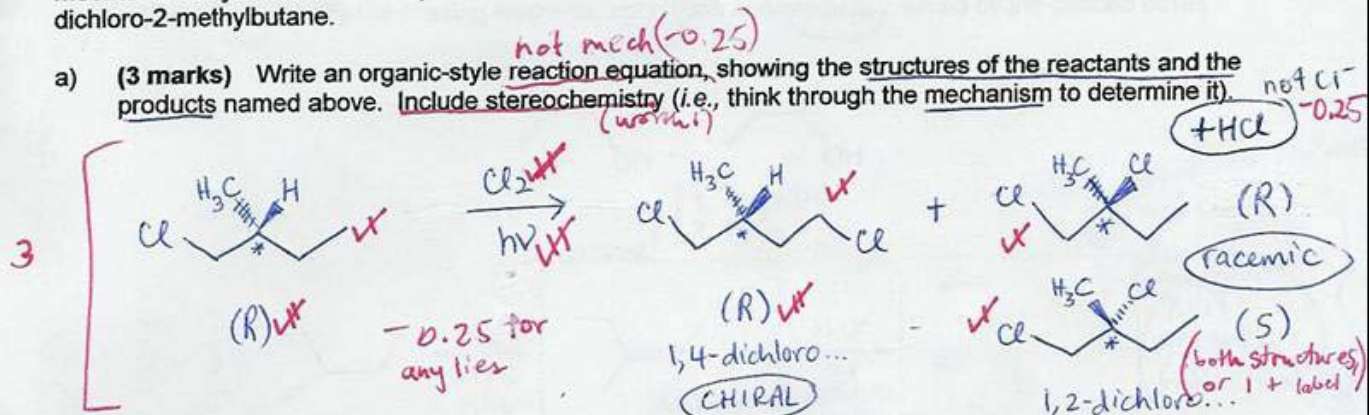 dichloro-2-methylbutane.
not mech (-0.25)
a) (3 marks) Write an organic-style reaction equation, showing the structures of the reactants and the
products named above. Include stereochemistry (i.e., think through the mechanism to determine it).
not Cl⁻
-0.25
+HCl
3
H₃C H
Cl *
Cl₂
hν
H₃C H
Cl * Cl
+
H₃C Cl
Cl *
(R)
racemic
(R)
-0.25 for
any lies
(R)
1,4-dichloro...
CHIRAL
H₃C Cl
Cl *
(S)
(both structures,
or 1 + label)
1,2-dichloro...